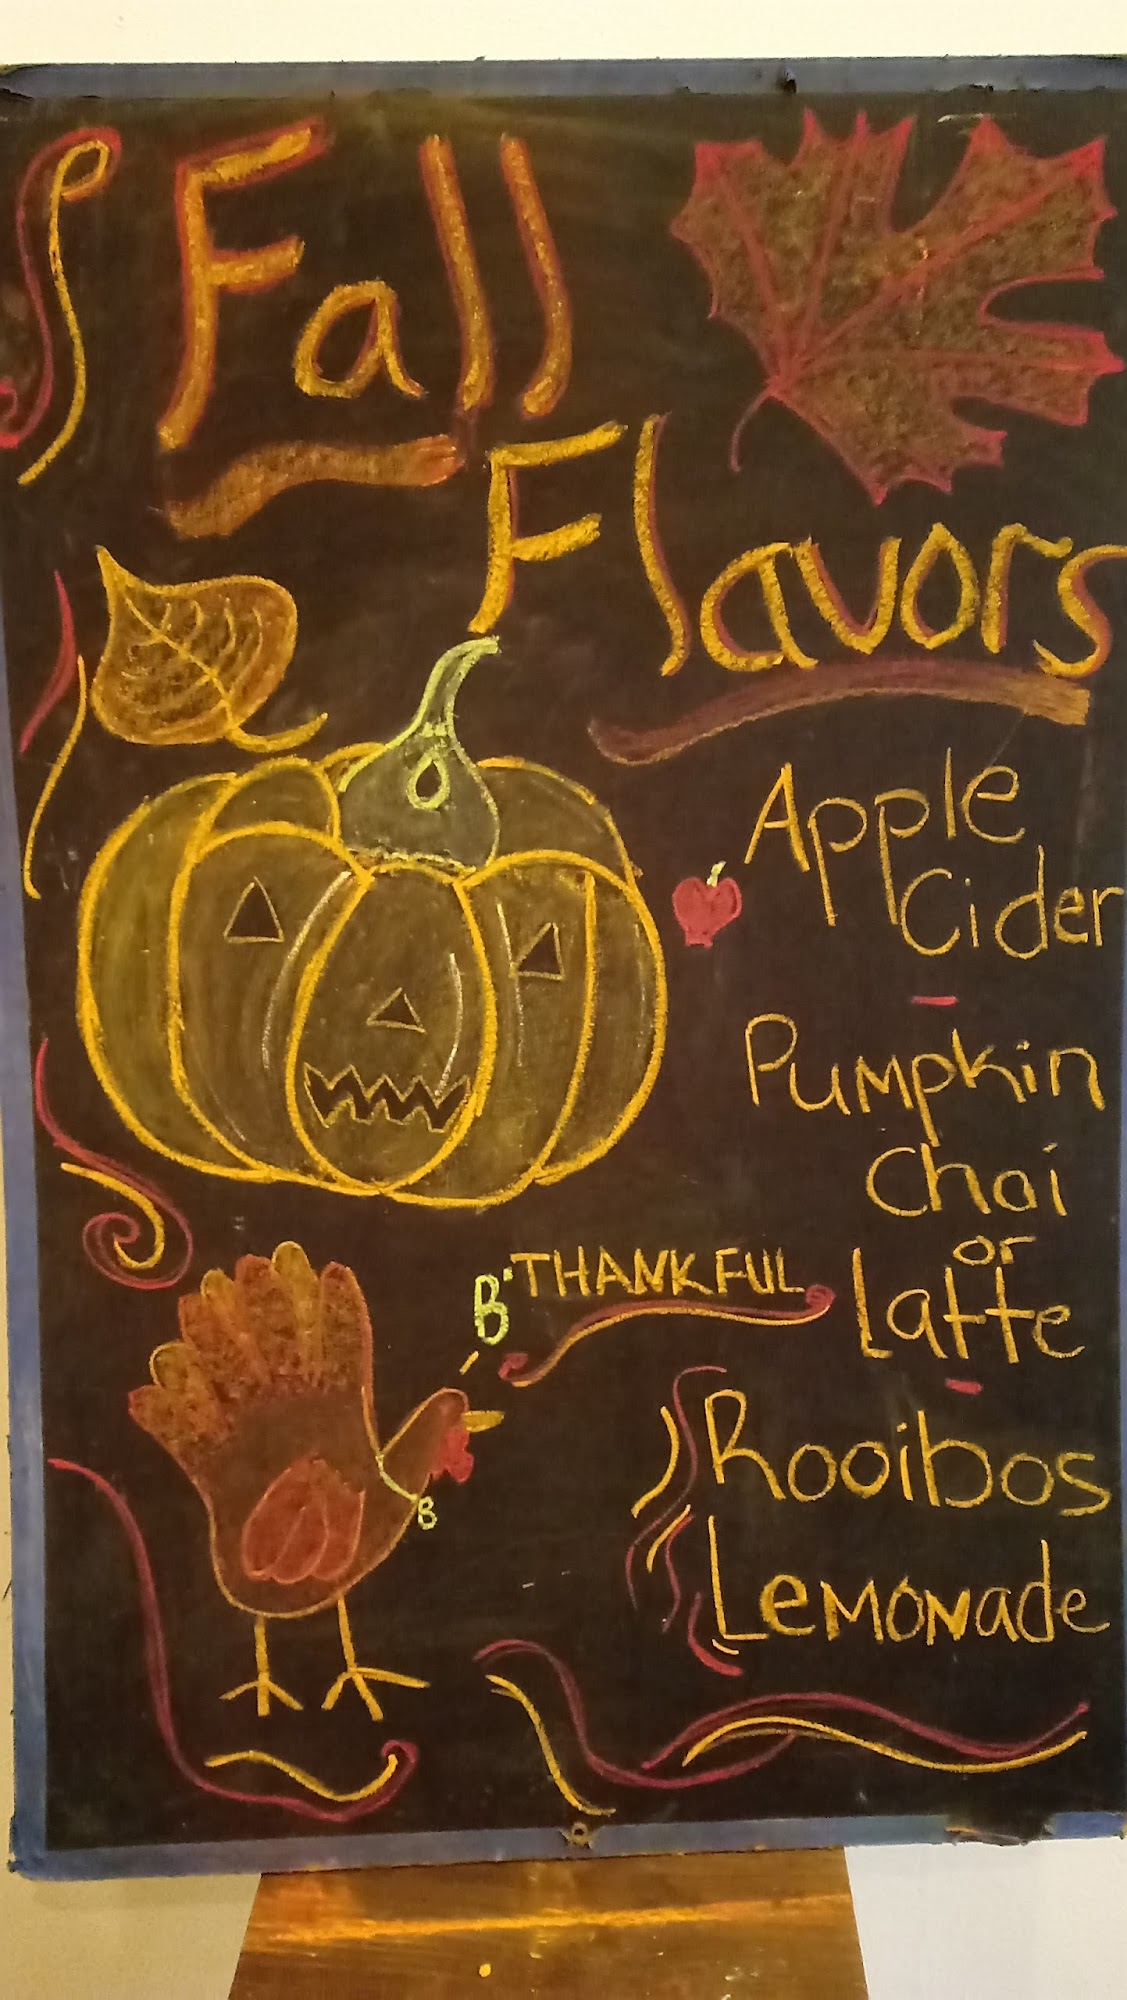 Fall
Flavors
Apple
Cider
-
Pumpkin
Chai
or
Latte
-
Rooibos
Lemonade
B' THANKFUL
B